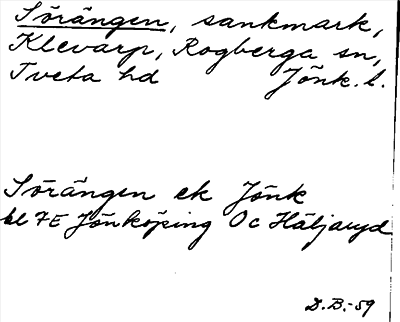 Sörängen, sankmark,
Klevarp, Rogberga sn,
Tveta hd Jönk. l.
Sörängen ek Jönk
bl 7E Jönköping Oc Häljaryd
D.B.-59